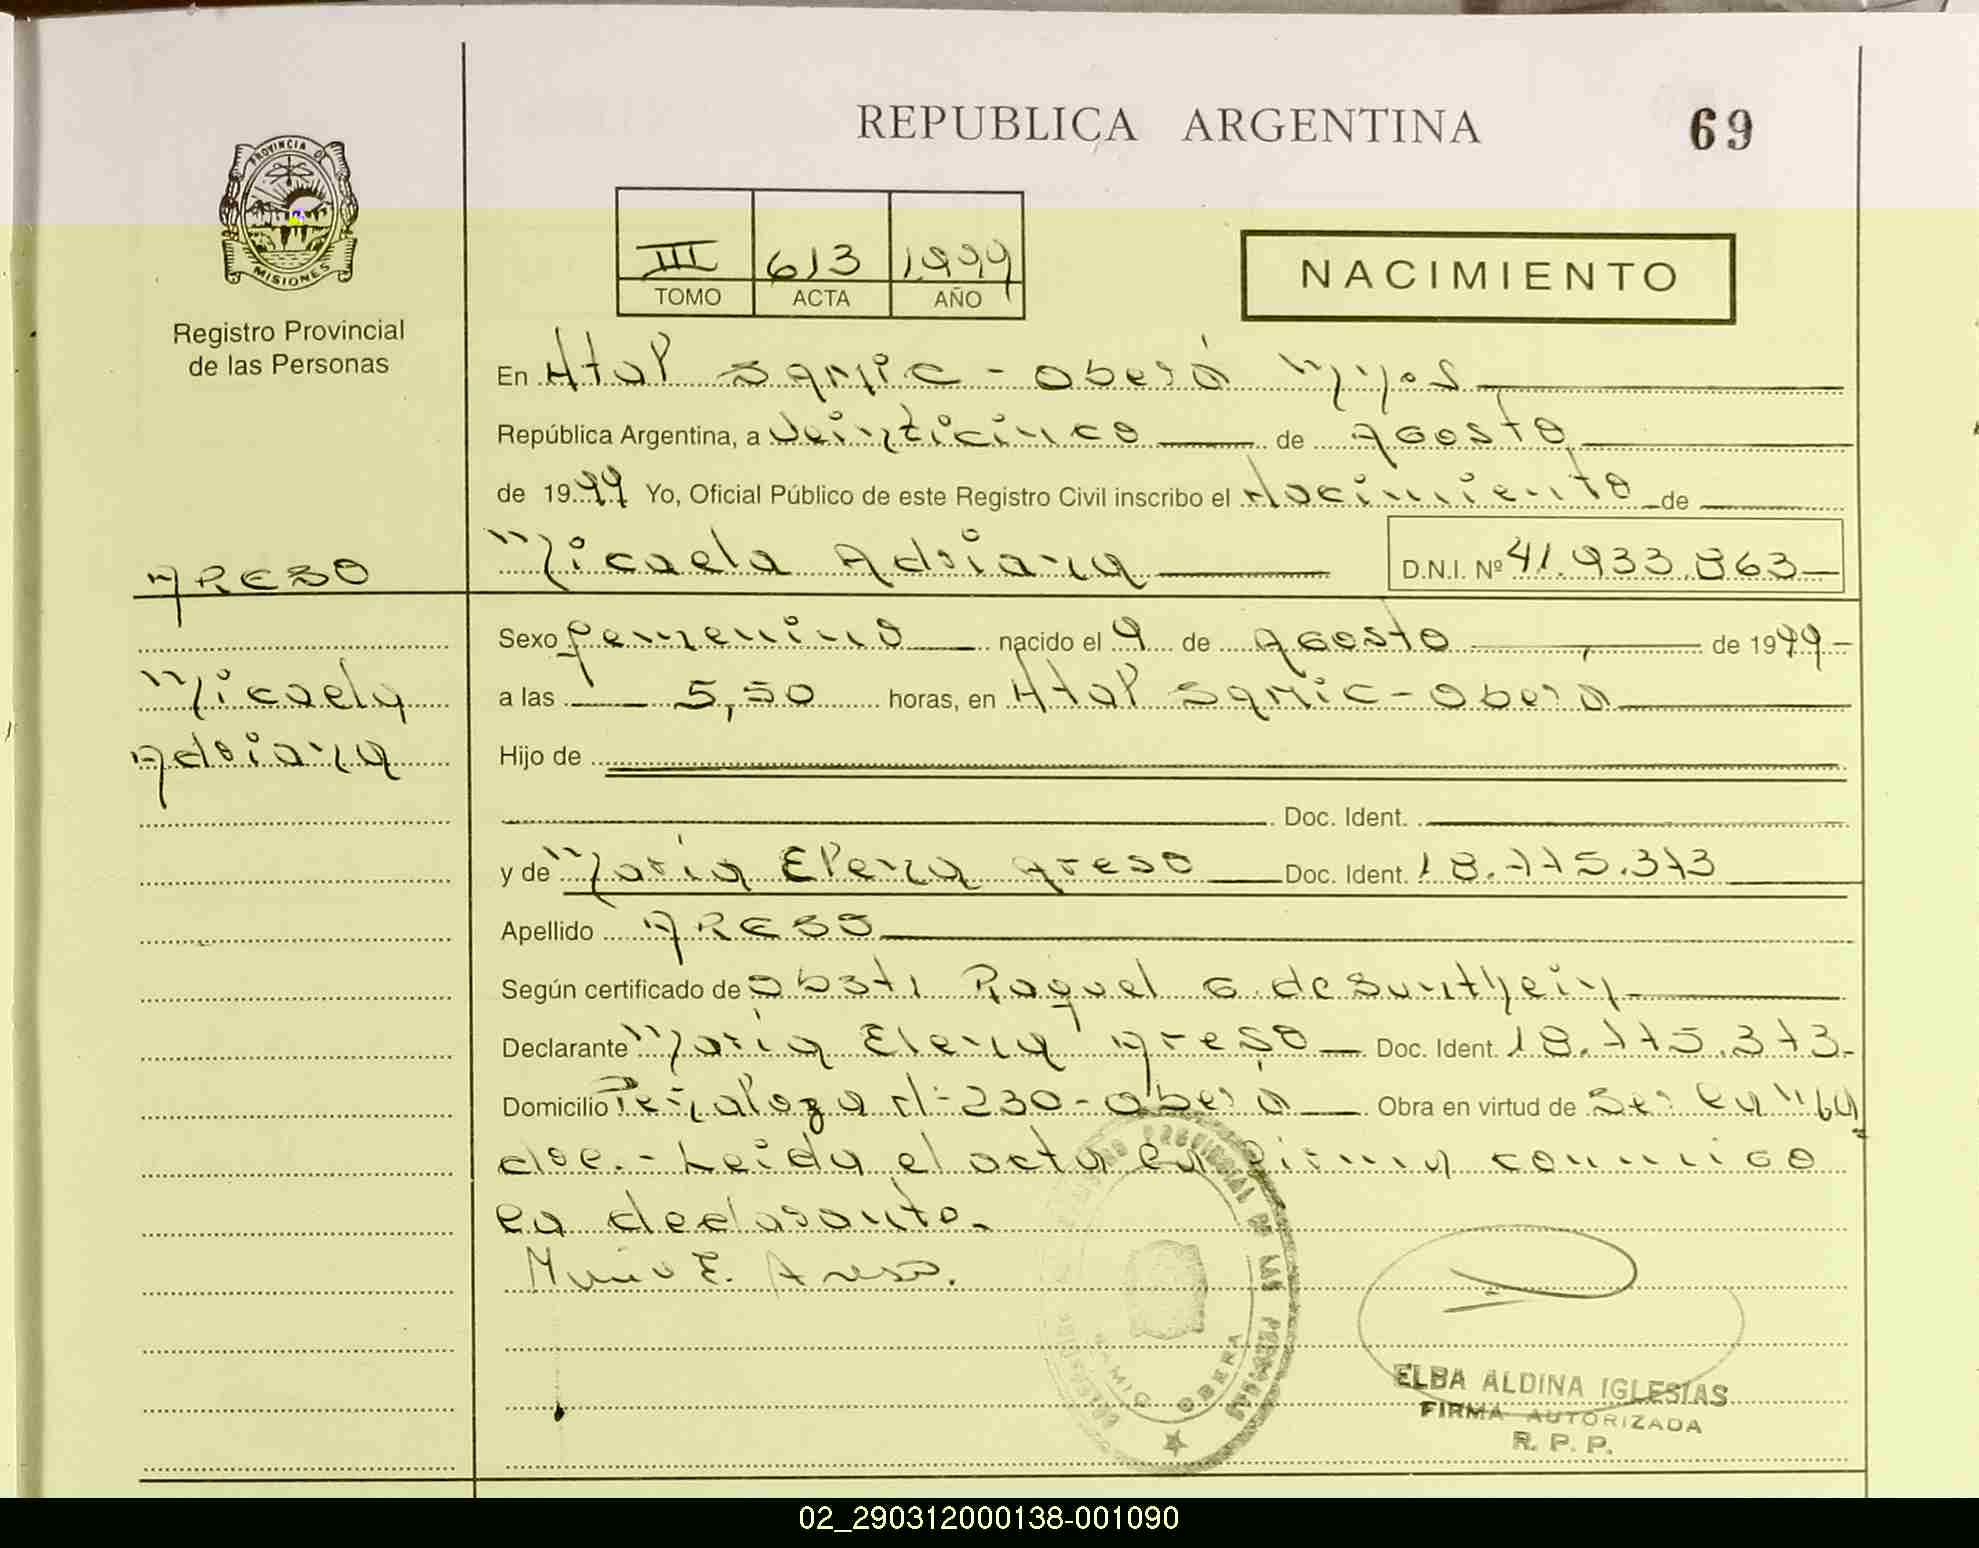 REPUBLICA ARGENTINA
69
PROVINCIA DE
MISIONES
Registro Provincial
de las Personas
III 613 1999
TOMO ACTA AÑO
NACIMIENTO
En Htal Samic - Oberá Mnes
República Argentina, a Veinticinco de Agosto
de 1999 Yo, Oficial Público de este Registro Civil inscribo el Nacimiento de
Micaela Adriana D.N.I. Nº 41.933.863
ARESO
Sexo femenino nacido el 9 de Agosto de 1999
Micaela
a las 5,50 horas, en Htal Samic - Oberá
Adriana
Hijo de
Doc. Ident.
y de María Elena Areso Doc. Ident. 18.775.373
Apellido ARESO
Según certificado de Obst. Raquel G. de Sunthein
Declarante María Elena Areso Doc. Ident. 18.775.373
Domicilio Peñaloza Nº 230 - Oberá Obra en virtud de Ser la
Leida el acta la firma conmigo
la declarante.
María E. Areso.
PROVINCIAL DE LAS PERSONAS
SAMIC OBERA
ELBA ALDINA IGLESIAS
FIRMA AUTORIZADA
R. P. P.
02_290312000138-001090